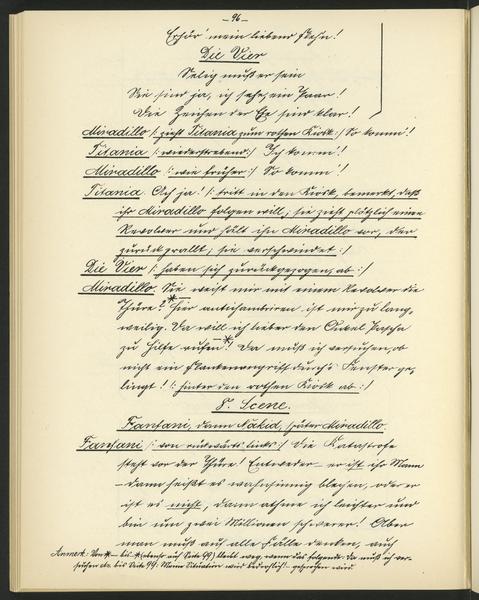 – 96 –
Erhör' mein liebend Flehn!
Die Vier
Selig muß er sein
Sie sind ja, ich seh, ein Paar!
Die Zeichen der Ehe sind klar!
Miradillo /: zieht Titania zum rothen Kiosk :/ So komm'!
Titania /: wiederstrebend :/ Ich komm'!
Miradillo /: wie früher :/ So komm'!
Titania. Ach ja! /: tritt in den Kiosk, bemerkt, daß
ihr Miradillo folgen will, sie zieht plötzlich einen
Revolver und hält ihn Miradillo vor, der
zurückprallt; sie verschwindet :/
Die Vier /: haben sich zurückgezogen, ab :/
Miradillo. Sie weist mir mit einem Revolver die
Thüre? * Hier antichambriren ist mir zu lang-
weilig. Da will ich lieber den Onkel Pascha
zu Hilfe rufen! * Da muß ich versuchen, ob
nicht ein Flankenangriff durch's Fenster ge-
lingt! /: hinter den rothen Kiosk ab :/
8. Scene.
Fanfani, dann Nakid, später Miradillo.
Fanfani /: von rückwärts links :/ Die Katastrofe
steht vor der Thüre! Entweder – er ist ihr Mann
– dann heißt es wahnsinnig blechen, oder er
ist es nicht, dann athme ich leichter und
bin um zwei Millionen schwerer! Aber
man muß auf alle Fälle denken, auch
Anmerk: Von * – bis * (ebenso auf Seite 99) bleibt weg, wenn das folgende: Da muß ich ver-
suchen etc. bis Seite 99: Meine Situation wird bedrohlich! – gesprochen wird.